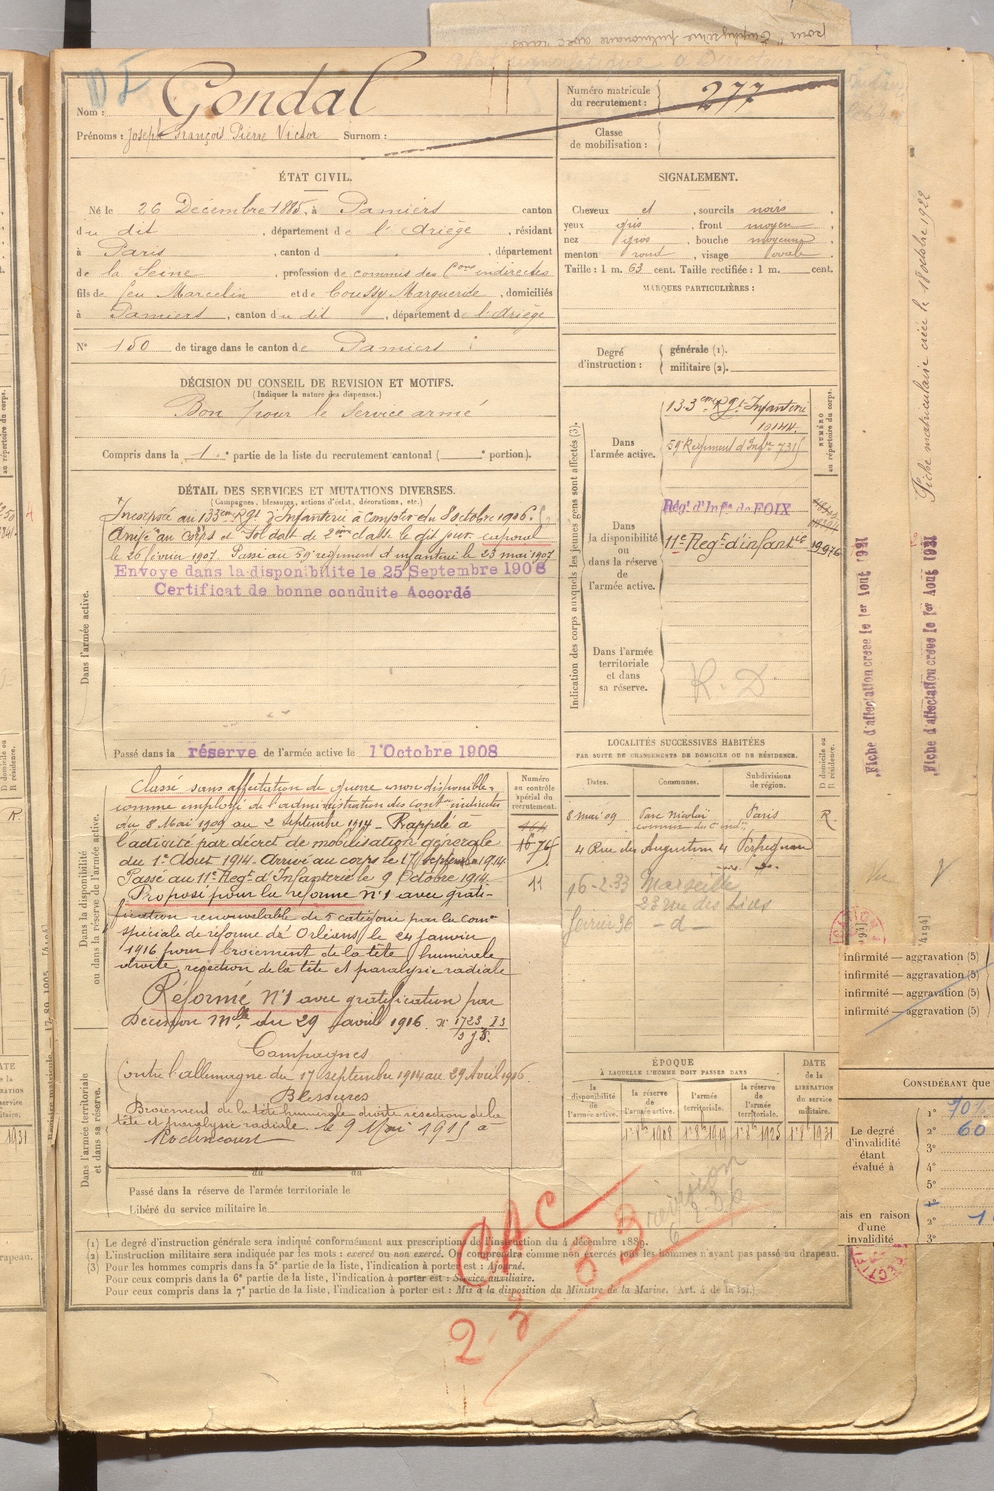 Nom : Gondal
Prénoms : Joseph François Pierre Victor Surnom :
Numéro matricule
du recrutement : 277
Classe
de mobilisation :
ÉTAT CIVIL.
Né le 26 Décembre 1885, à Pamiers canton
du dit, département de l'Ariège, résidant
à Paris, canton d , département
de la Seine, profession de commis des Cons indirectes
fils de feu Marcelin et de Coussy Marguerite, domiciliés
à Pamiers, canton du dit, département de l'Ariège
N° 150 de tirage dans le canton de Pamiers
SIGNALEMENT.
Cheveux et, sourcils noirs,
yeux gris, front moyen,
nez gros, bouche moyenne,
menton rond, visage ovale.
Taille : 1 m. 63 cent. Taille rectifiée : 1 m. cent.
MARQUES PARTICULIÈRES :
Degré
d'instruction :
générale (1).
militaire (2).
DÉCISION DU CONSEIL DE REVISION ET MOTIFS.
(Indiquer la nature des dispenses.)
Bon pour le Service armé
Compris dans la 1e partie de la liste du recrutement cantonal ( e portion).
DÉTAIL DES SERVICES ET MUTATIONS DIVERSES.
(Campagnes, blessures, actions d'éclat, décorations, etc.)
Incorporé au 133em Rgt d'Infanterie à Compter du 8 octobre 1906.
Arrivé au Corps et Soldat de 2ème classe le dit jour. caporal
le 26 février 1907. Passé au 59e régiment d'infanterie le 23 mai 1907
Envoyé dans la disponibilité le 25 Septembre 1908
Certificat de bonne conduite Accordé
Dans l'armée active.
Passé dans la réserve de l'armée active le 1er Octobre 1908
Indication des corps auxquels les jeunes gens sont affectés (3).
NUMÉRO
au répertoire du corps.
Dans
l'armée active.
133em Rgt Infanterie
10144.
59e Régiment d'Infie 7315
Dans
la disponibilité
ou
dans la réserve
de
l'armée active.
Régt d'Infie de FOIX
11e Regt d'infantie
Dans l'armée
territoriale
et dans
sa réserve.
R. D
Dans la disponibilité
ou dans la réserve de l'armée active.
Numéro
au contrôle
spécial du
recrutement.
11
Classé sans affectation de guerre "non disponible"
comme employé de l'administration des Contons indirectes
du 8 Mai 1909 au 2 Septembre 1914 - Rappelé à
l'activité par décret de mobilisation générale
du 1er Août 1914. Arrivé au corps le 17 septembre 1914
Passé au 11e Regt d'Infanterie le 9 Octobre 1914
Proposé pour la réforme N°1 avec grati-
fication renouvelable de 5 catégorie par la Com°n
spéciale de réforme d'Orléans le 24 janvier
1916 pour broiement de la tête humérale
droite, résection de la tête et paralysie radiale
Réformé N°1 avec gratification par
Décision Mlle du 29 avril 1916.
Campagnes
Contre l'allemagne du 17 septembre 1914 au 29 Avril 1916
Blessures
Broiement de la tête humérale droite résection de la
tête et paralysie radiale le 9 Mai 1915 à
Roclincourt
Dans l'armée territoriale
et dans sa réserve.
du au
Passé dans la réserve de l'armée territoriale le
Libéré du service militaire le
LOCALITÉS SUCCESSIVES HABITÉES
PAR SUITE DE CHANGEMENTS DE DOMICILE OU DE RÉSIDENCE.
Dates. Communes. Subdivisions
de région.
D domicile ou
R résidence.
8 mai 09 Parc Nicolaï Paris R.
4 Rue des Augustins 4 Perpignan
16-2-33 Marseille
23 rue des
février 36 - d -
ÉPOQUE
À LAQUELLE L'HOMME DOIT PASSER DANS
la
disponibilité
de
l'armée active.
la réserve
de
l'armée active.
l'armée
territoriale.
la réserve
de
l'armée
territoriale.
DATE
de la
LIBÉRATION
du
service
militaire.
1r 8bre 1908 1r 8bre 1919 1r 8bre 1925 1r 8bre 1931
révision
CAC
(1) Le degré d'instruction générale sera indiqué conformément aux prescriptions de l'instruction du 4 décembre 1889.
(2) L'instruction militaire sera indiquée par les mots : exercé ou non exercé. On comprendra comme non exercés tous les hommes n'ayant pas passé au drapeau.
(3) Pour les hommes compris dans la 5e partie de la liste, l'indication à porter est : Ajourné.
Pour ceux compris dans la 6e partie de la liste, l'indication à porter est : Service auxiliaire.
Pour ceux compris dans la 7e partie de la liste, l'indication à porter est : Mis à la disposition du Ministre de la Marine. (Art. 4 de la loi.)
Fiche matriculaire créée le 18 octobre 1922
Fiche d'affectation créée le 1er Août 1931
Fiche d'affectation créée le 1er Août 1931
infirmité — aggravation (5)
infirmité — aggravation (5)
infirmité — aggravation (5)
infirmité — aggravation (5)
CONSIDÉRANT que
Le degré
d'invalidité
étant
évalué à
1° 70%
2° 60
3°
4°
5°
ais en raison
d'une
invalidité
1°
2°
3°